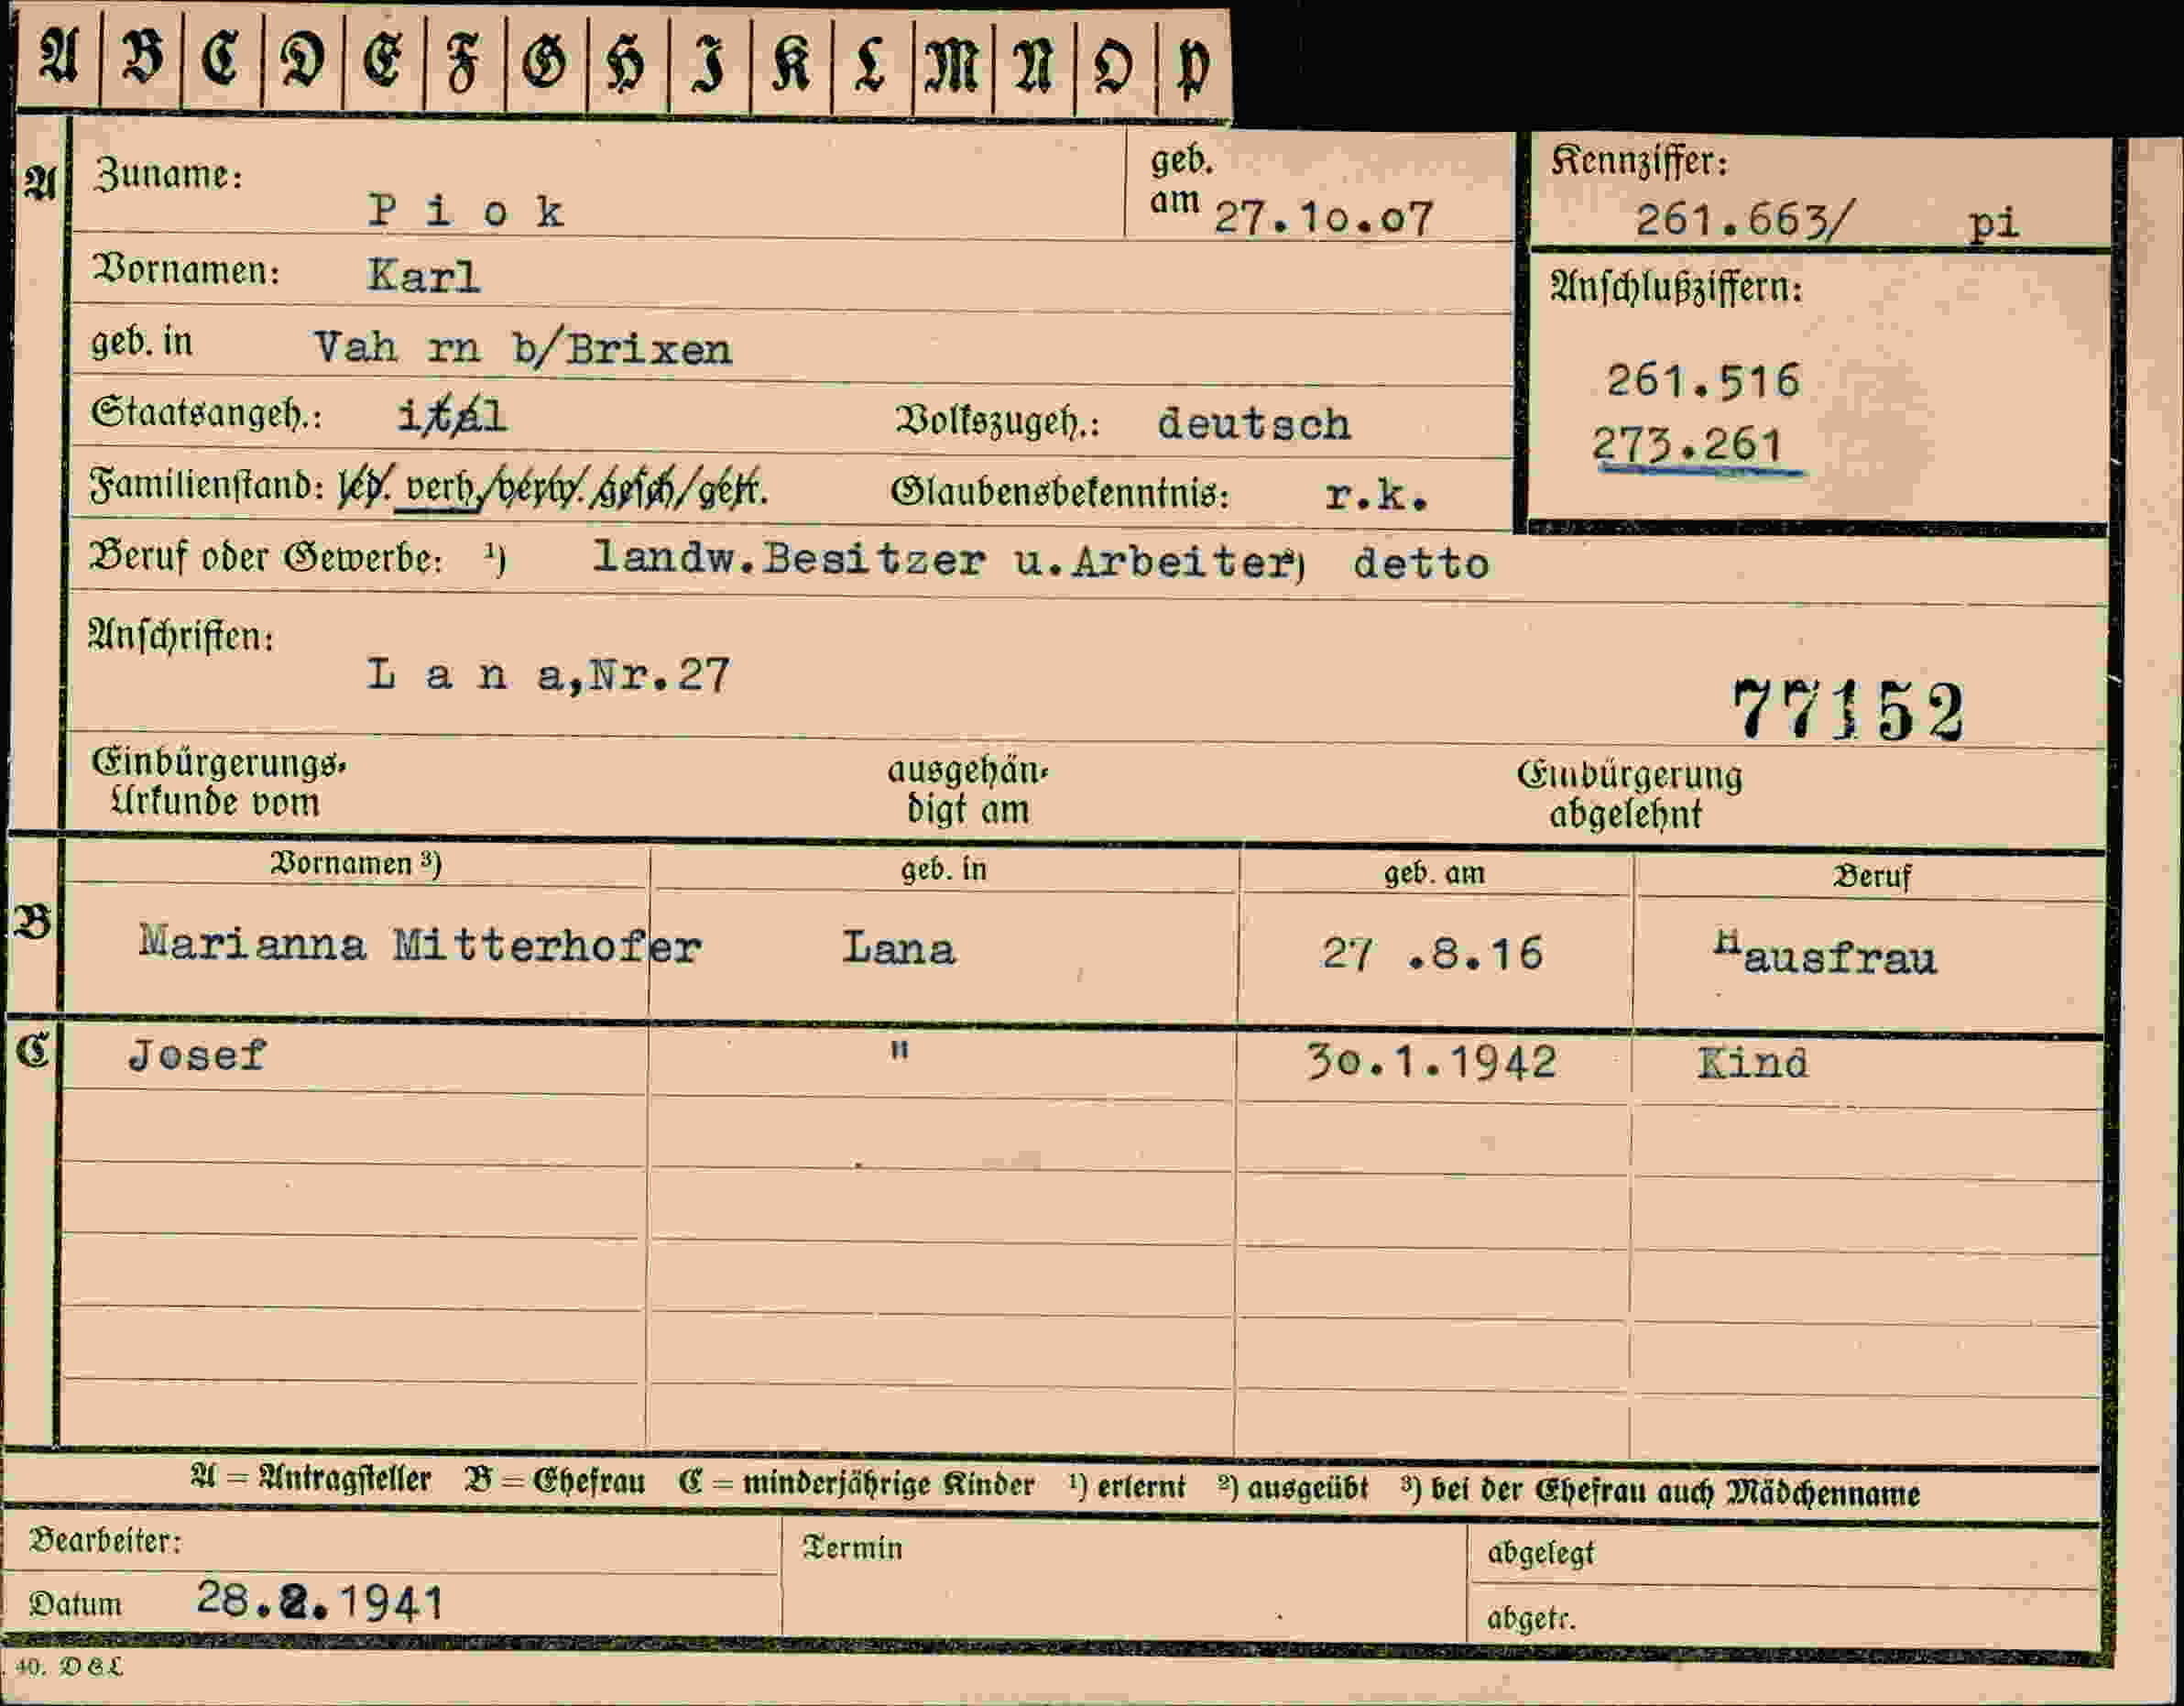 A B C D E F G H I K L M N O P
A Zuname: P i o k geb. am 27.10.07 Kennziffer: 261.663/ pi
Vornamen: Karl Anschlußziffern:
geb. in Vah rn b/Brixen 261.516
Staatsangeh.: ital Volkszugeh.: deutsch 273.261
Familienstand: led. verh./verw./gesch/getr. Glaubensbekenntnis: r.k.
Beruf oder Gewerbe: ¹) landw.Besitzer u.Arbeiter) detto
Anschriften:
L a n a,Nr.27
77152
Einbürgerungs- ausgehän- Einbürgerung
Urkunde vom digt am abgelehnt
Vornamen ³) geb. in geb. am Beruf
B Marianna Mitterhofer Lana 27 .8.16 Hausfrau
C Josef " 30.1.1942 Kind
A = Antragsteller B = Ehefrau C = minderjährige Kinder ¹) erlernt ²) ausgeübt ³) bei der Ehefrau auch Mädchenname
Bearbeiter: Termin abgelegt
Datum 28.2.1941 abgetr.
40. D&L